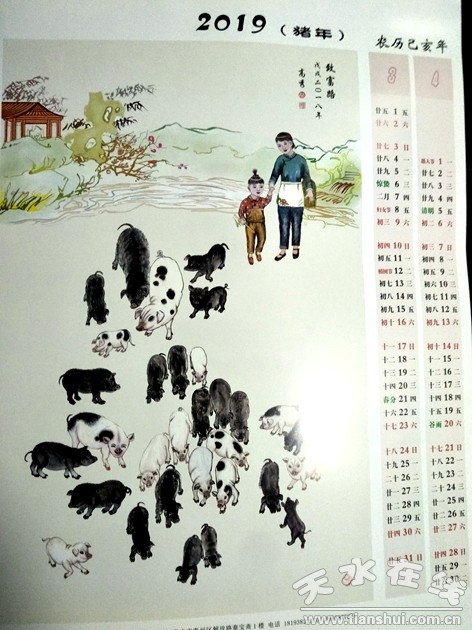 2019（豬年）
农历己亥年
致富路
戊戌二〇一八年
高秀
3
廿五 1 五
廿六 2 六
廿七 3 日
廿八 4 一
廿九 5 二
惊蛰 6 三
二月 7 四
妇女节 8 五
初三 9 六
初四 10 日
初五 11 一
植树节 12 二
初七 13 三
初八 14 四
初九 15 五
初十 16 六
十一 17 日
十二 18 一
十三 19 二
十四 20 三
春分 21 四
十六 22 五
十七 23 六
十八 24 日
十九 25 一
二十 26 二
廿一 27 三
廿二 28 四
廿三 29 五
廿四 30 六
廿五 31 日
4
愚人节 1 一
廿七 2 二
廿八 3 三
廿九 4 四
清明 5 五
初二 6 六
初三 7 日
初四 8 一
初五 9 二
初六 10 三
初七 11 四
初八 12 五
初九 13 六
初十 14 日
十一 15 一
十二 16 二
十三 17 三
十四 18 四
十五 19 五
谷雨 20 六
十七 21 日
十八 22 一
十九 23 二
二十 24 三
廿一 25 四
廿二 26 五
廿三 27 六
廿四 28 日
廿五 29 一
廿六 30 二
1楼 电话 181938
天水在线
www.tianshui.com.cn